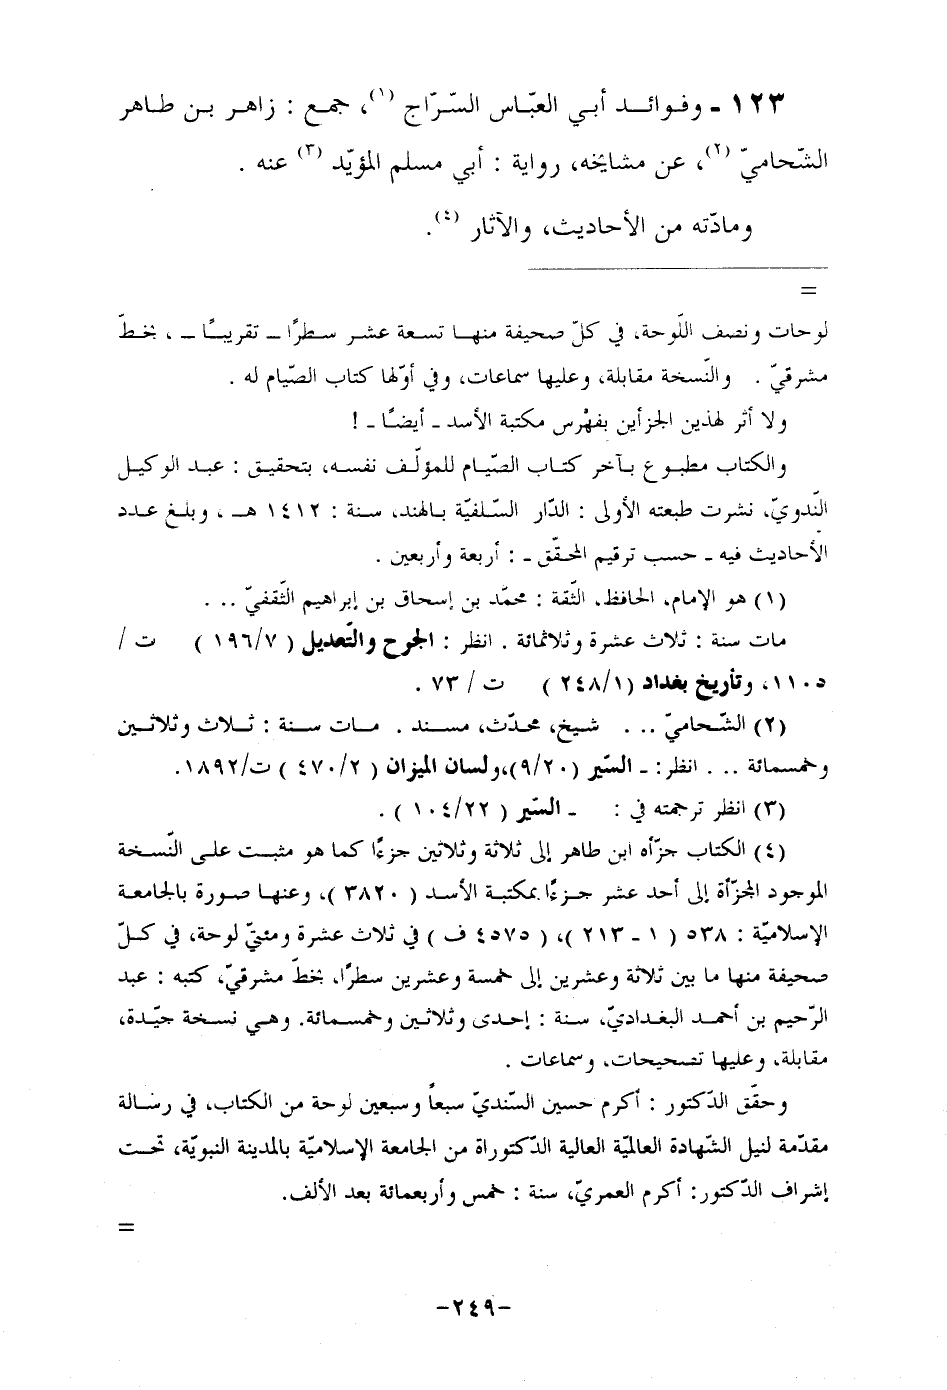 ١٢٣ - وفوائد أبي العبّاس السّرّاج (١)، جمع : زاهر بن طاهر
الشّحاميّ (٢)، عن مشايخه، رواية : أبي مسلم المؤيّد (٣) عنه .
ومادّته من الأحاديث، والآثار (٤).
=
لوحات ونصف اللّوحة، في كلّ صحيفة منها تسعة عشر سطرًا ـ تقريبًا ـ ، بخطّ
مشرقيّ . والنّسخة مقابلة، وعليها سماعات، وفي أوّلها كتاب الصّيام له .
ولا أثر لهذين الجزأين بفهْرس مكتبة الأسد ـ أيضًا ـ !
والكتاب مطبوع بآخر كتاب الصّيام للمؤلّف نفسه، بتحقيق : عبد الوكيل
النّدويّ، نشرت طبعته الأولى : الدّار السّلفيّة بالهند، سنة : ١٤١٢ هـ ، وبلغ عدد
الأحاديث فيه ـ حسب ترقيم المحقّق ـ : أربعة وأربعين .
(١) هو الإمام، الحافظ، الثّقة : محمّد بن إسحاق بن إبراهيم الثّقفيّ . . .
مات سنة : ثلاث عشرة وثلاثمائة . انظر : الجرح والتّعديل ( ١٩٦/٧ ) ت /
١١٠٥، وتأريخ بغداد (٢٤٨/١ ) ت / ٧٣ .
(٢) الشّحاميّ . . . شيخ، محدّث، مسند . مات سنة : ثلاث وثلاثين
وخمسمائة . . . انظر: ـ السّير (٩/٢٠)،ولسان الميزان ( ٤٧٠/٢ ) ت/١٨٩٢.
(٣) انظر ترجمته في : ـ السّير ( ١٠٤/٢٢ ) .
(٤) الكتاب جزّأه ابن طاهر إلى ثلاثة وثلاثين جزءًا كما هو مثبت على النّسخة
الموجود المجزّأة إلى أحد عشر جزءًا بمكتبة الأسد ( ٣٨٢٠ )، وعنها صورة بالجامعة
الإسلاميّة : ٥٣٨ ( ١ - ٢١٣ )، ( ٤٥٧٥ ف ) في ثلاث عشرة ومئتيْ لوحة، في كلّ
صحيفة منها ما بين ثلاثة وعشرين إلى خمسة وعشرين سطرًا، بخطّ مشرقيّ، كتبه : عبد
الرّحيم بن أحمد البغداديّ، سنة : إحدى وثلاثين وخمسمائة. وهي نسخة جيّدة،
مقابلة، وعليها تصحيحات، وسماعات .
وحقّق الدّكتور : أكرم حسين السّنديّ سبعاً وسبعين لوحة من الكتاب، في رسالة
مقدّمة لنيل الشّهادة العالميّة العالية الدّكتوراة من الجامعة الإسلاميّة بالمدينة النبويّة، تحت
إشراف الدّكتور: أكرم العمريّ، سنة : خمس وأربعمائة بعد الألف.
=
-٢٤٩-